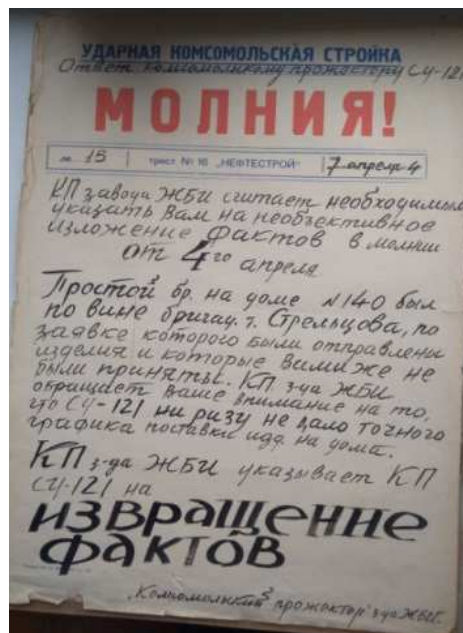 УДАРНАЯ КОМСОМОЛЬСКАЯ СТРОЙКА
Ответ комсомолькому прожектору СУ-121
МОЛНИЯ!
№ 15 трест № 16 „НЕФТЕСТРОЙ" 7 апреля
КП завода ЖБИ считает необходимым
указать Вам на необъективное
изложение фактов в молнии
от 4го апреля
Простой бр. на доме №140 был
по вине бригад. т. Стрельцова, по
заявке которого были отправлены
изделия и которые Вами же не
были приняты. КП з-да ЖБИ
обращает Ваше внимание на то,
что СУ-121 ни разу не дало точного
графика поставки изд. на дома.
КП з-да ЖБИ указывает КП
СУ-121 на
извращение
фактов
„Комсомольский прожектор" з-да ЖБИ.